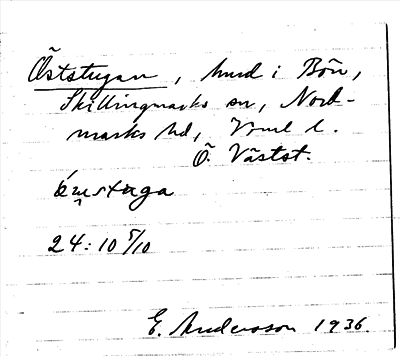 Öststugan, hmd i Bön,
Skillingmarks sn, Nord-
marks hd, Vrml l.
Ö. Västst.
24: 10 5/10
E. Andersson 1936.